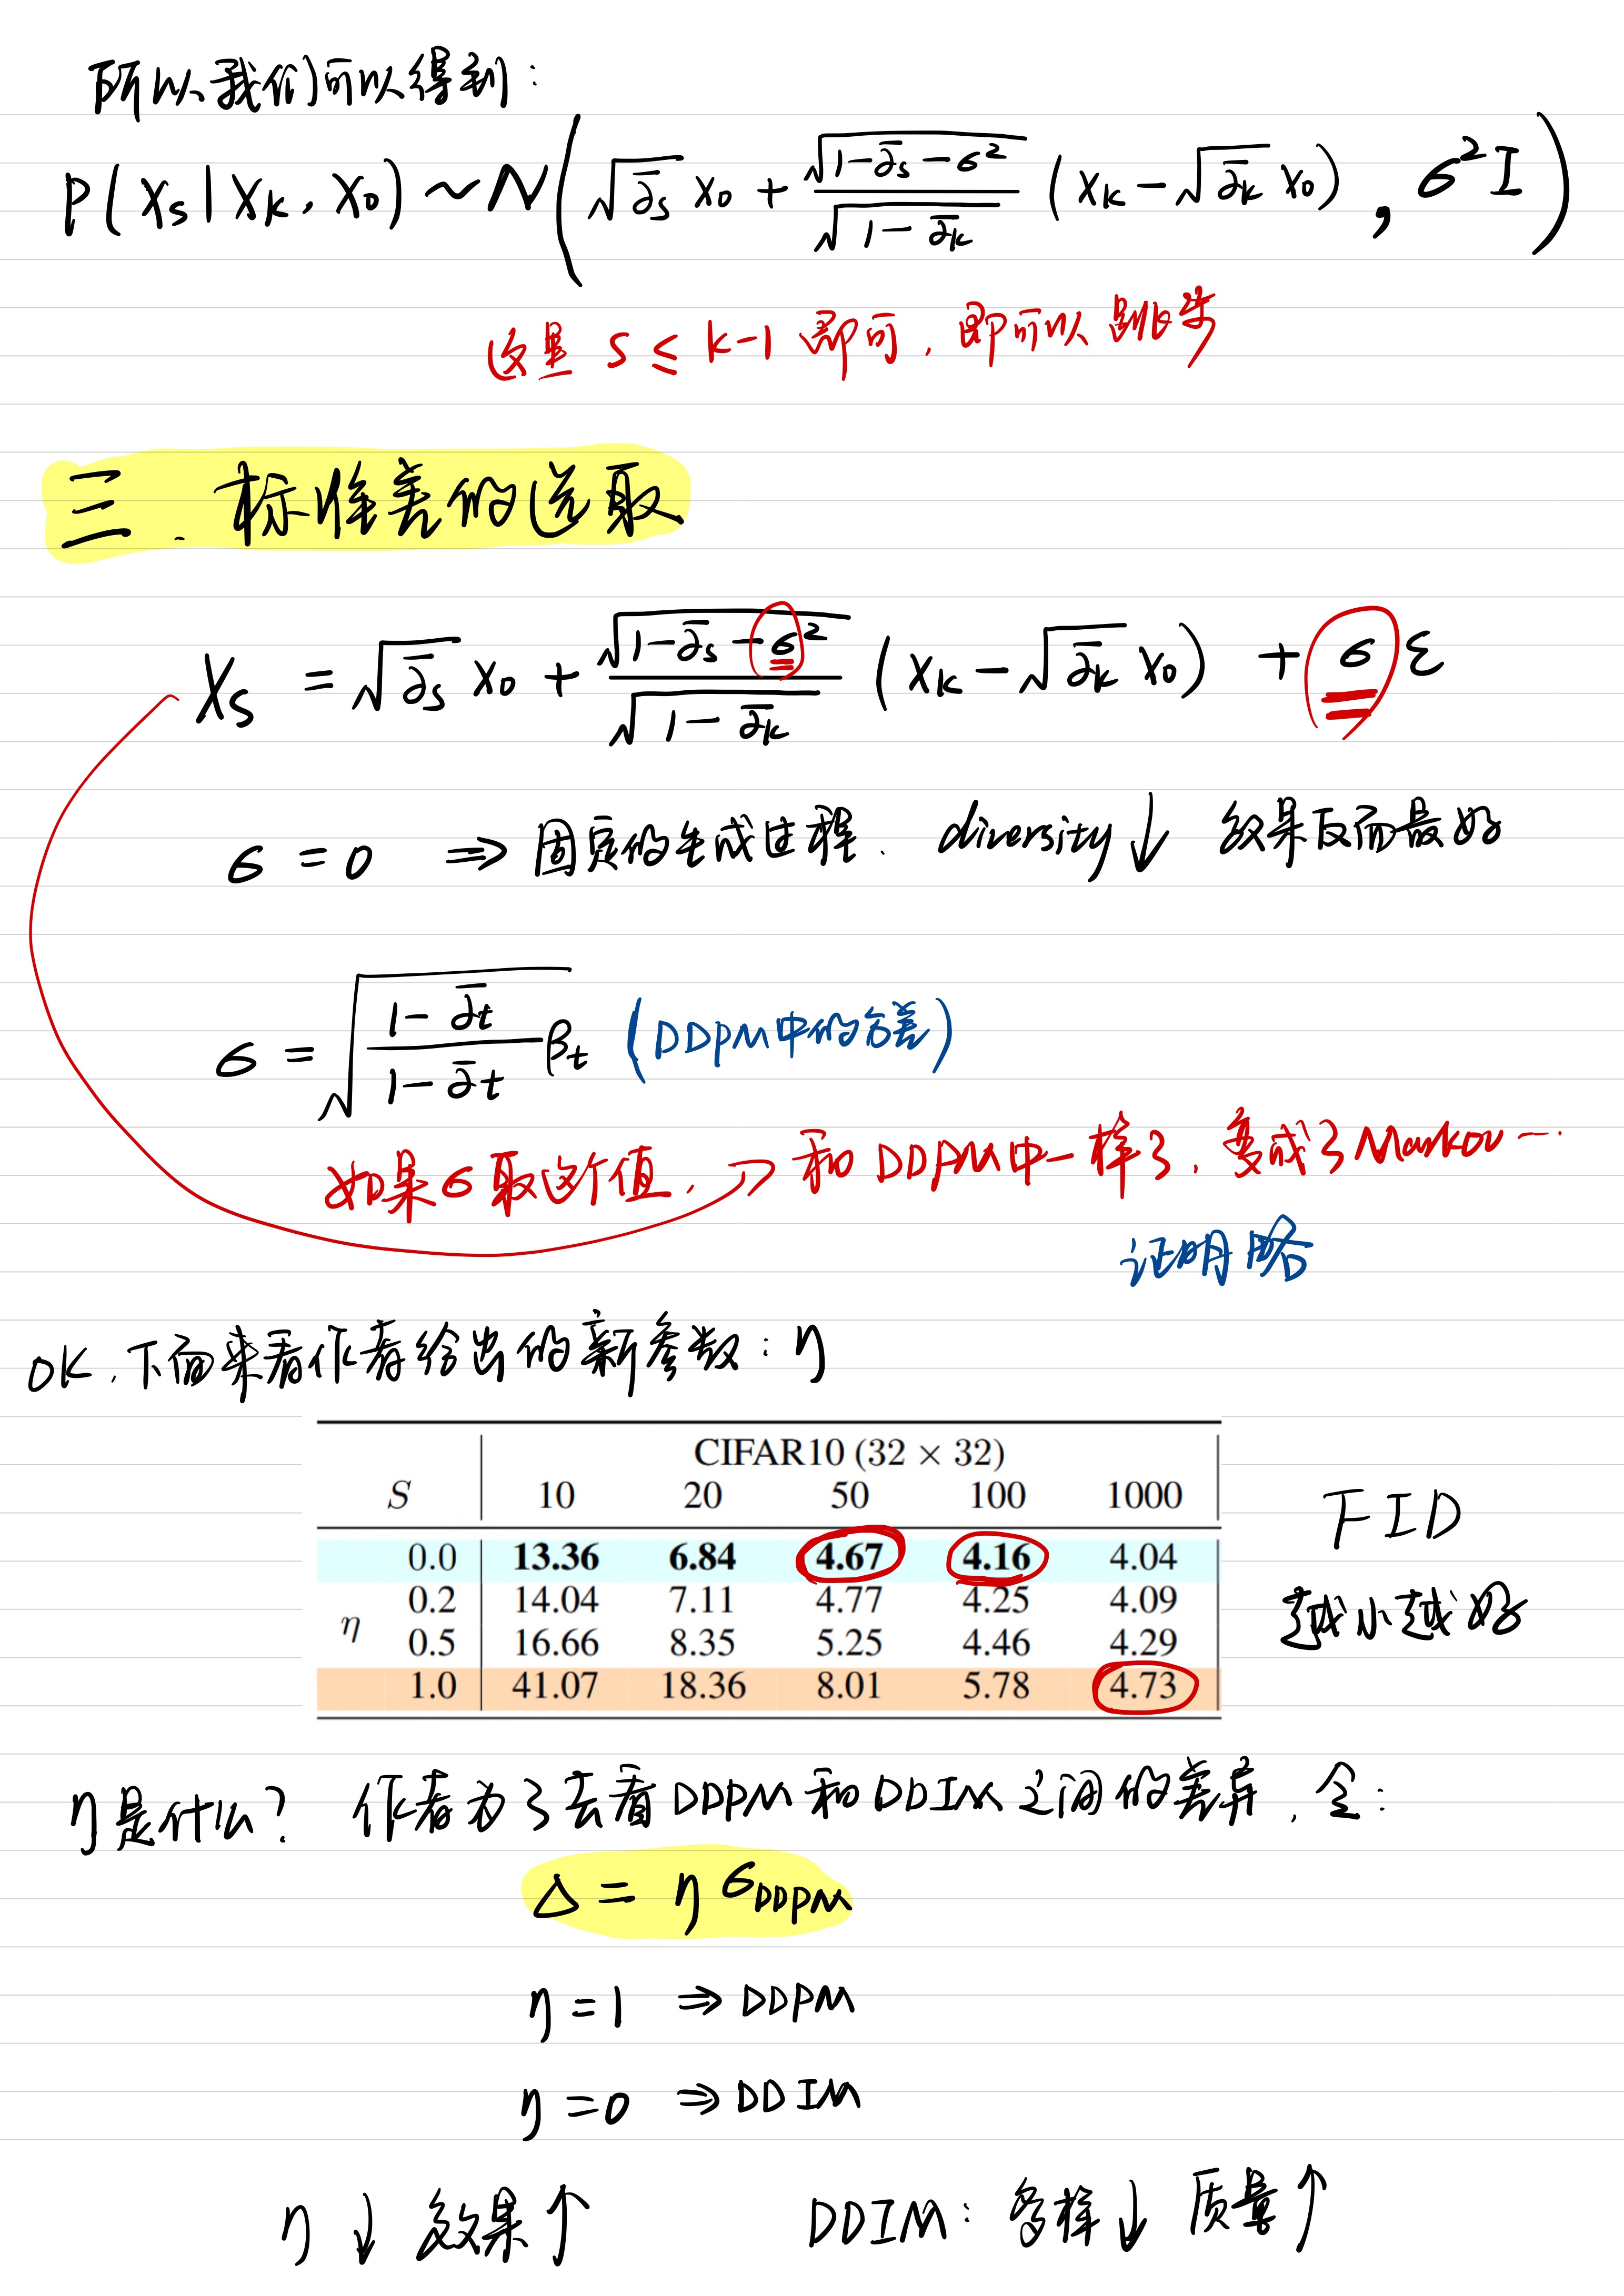 所以我们可以得到:
P(Xs|Xk, X0) ~ N(√ᾱs X0 + √(1-ᾱs-σ²)/√(1-ᾱk) (Xk-√ᾱk X0), σ²I)
这里 s ≤ k-1 即可, 即可以跳步
三、标准差的选取
Xs = √ᾱs X0 + √(1-ᾱs-σ²)/√(1-ᾱk) (Xk-√ᾱk X0) + σε
σ = 0 ⇒ 固定的生成过程、diversity↓ 效果反而最好
σ = √((1-ᾱt)/(1-ᾱt) βt) (DDPM中的方差)
如果σ取这个值, → 和DDPM中一样了, 变成了Markov…
证明略
OK, 下面来看作者给出的新参数: η
CIFAR10 (32 × 32)
S 10 20 50 100 1000
0.0 13.36 6.84 4.67 4.16 4.04
0.2 14.04 7.11 4.77 4.25 4.09
η 0.5 16.66 8.35 5.25 4.46 4.29
1.0 41.07 18.36 8.01 5.78 4.73
FID
越小越好
η是什么? 作者为了去看DDPM和DDIM之间的差异, 令:
Δ = η σDDPM
η = 1 ⇒ DDPM
η = 0 ⇒ DDIM
η ↓ 效果↑ DDIM: 多样↓ 质量↑